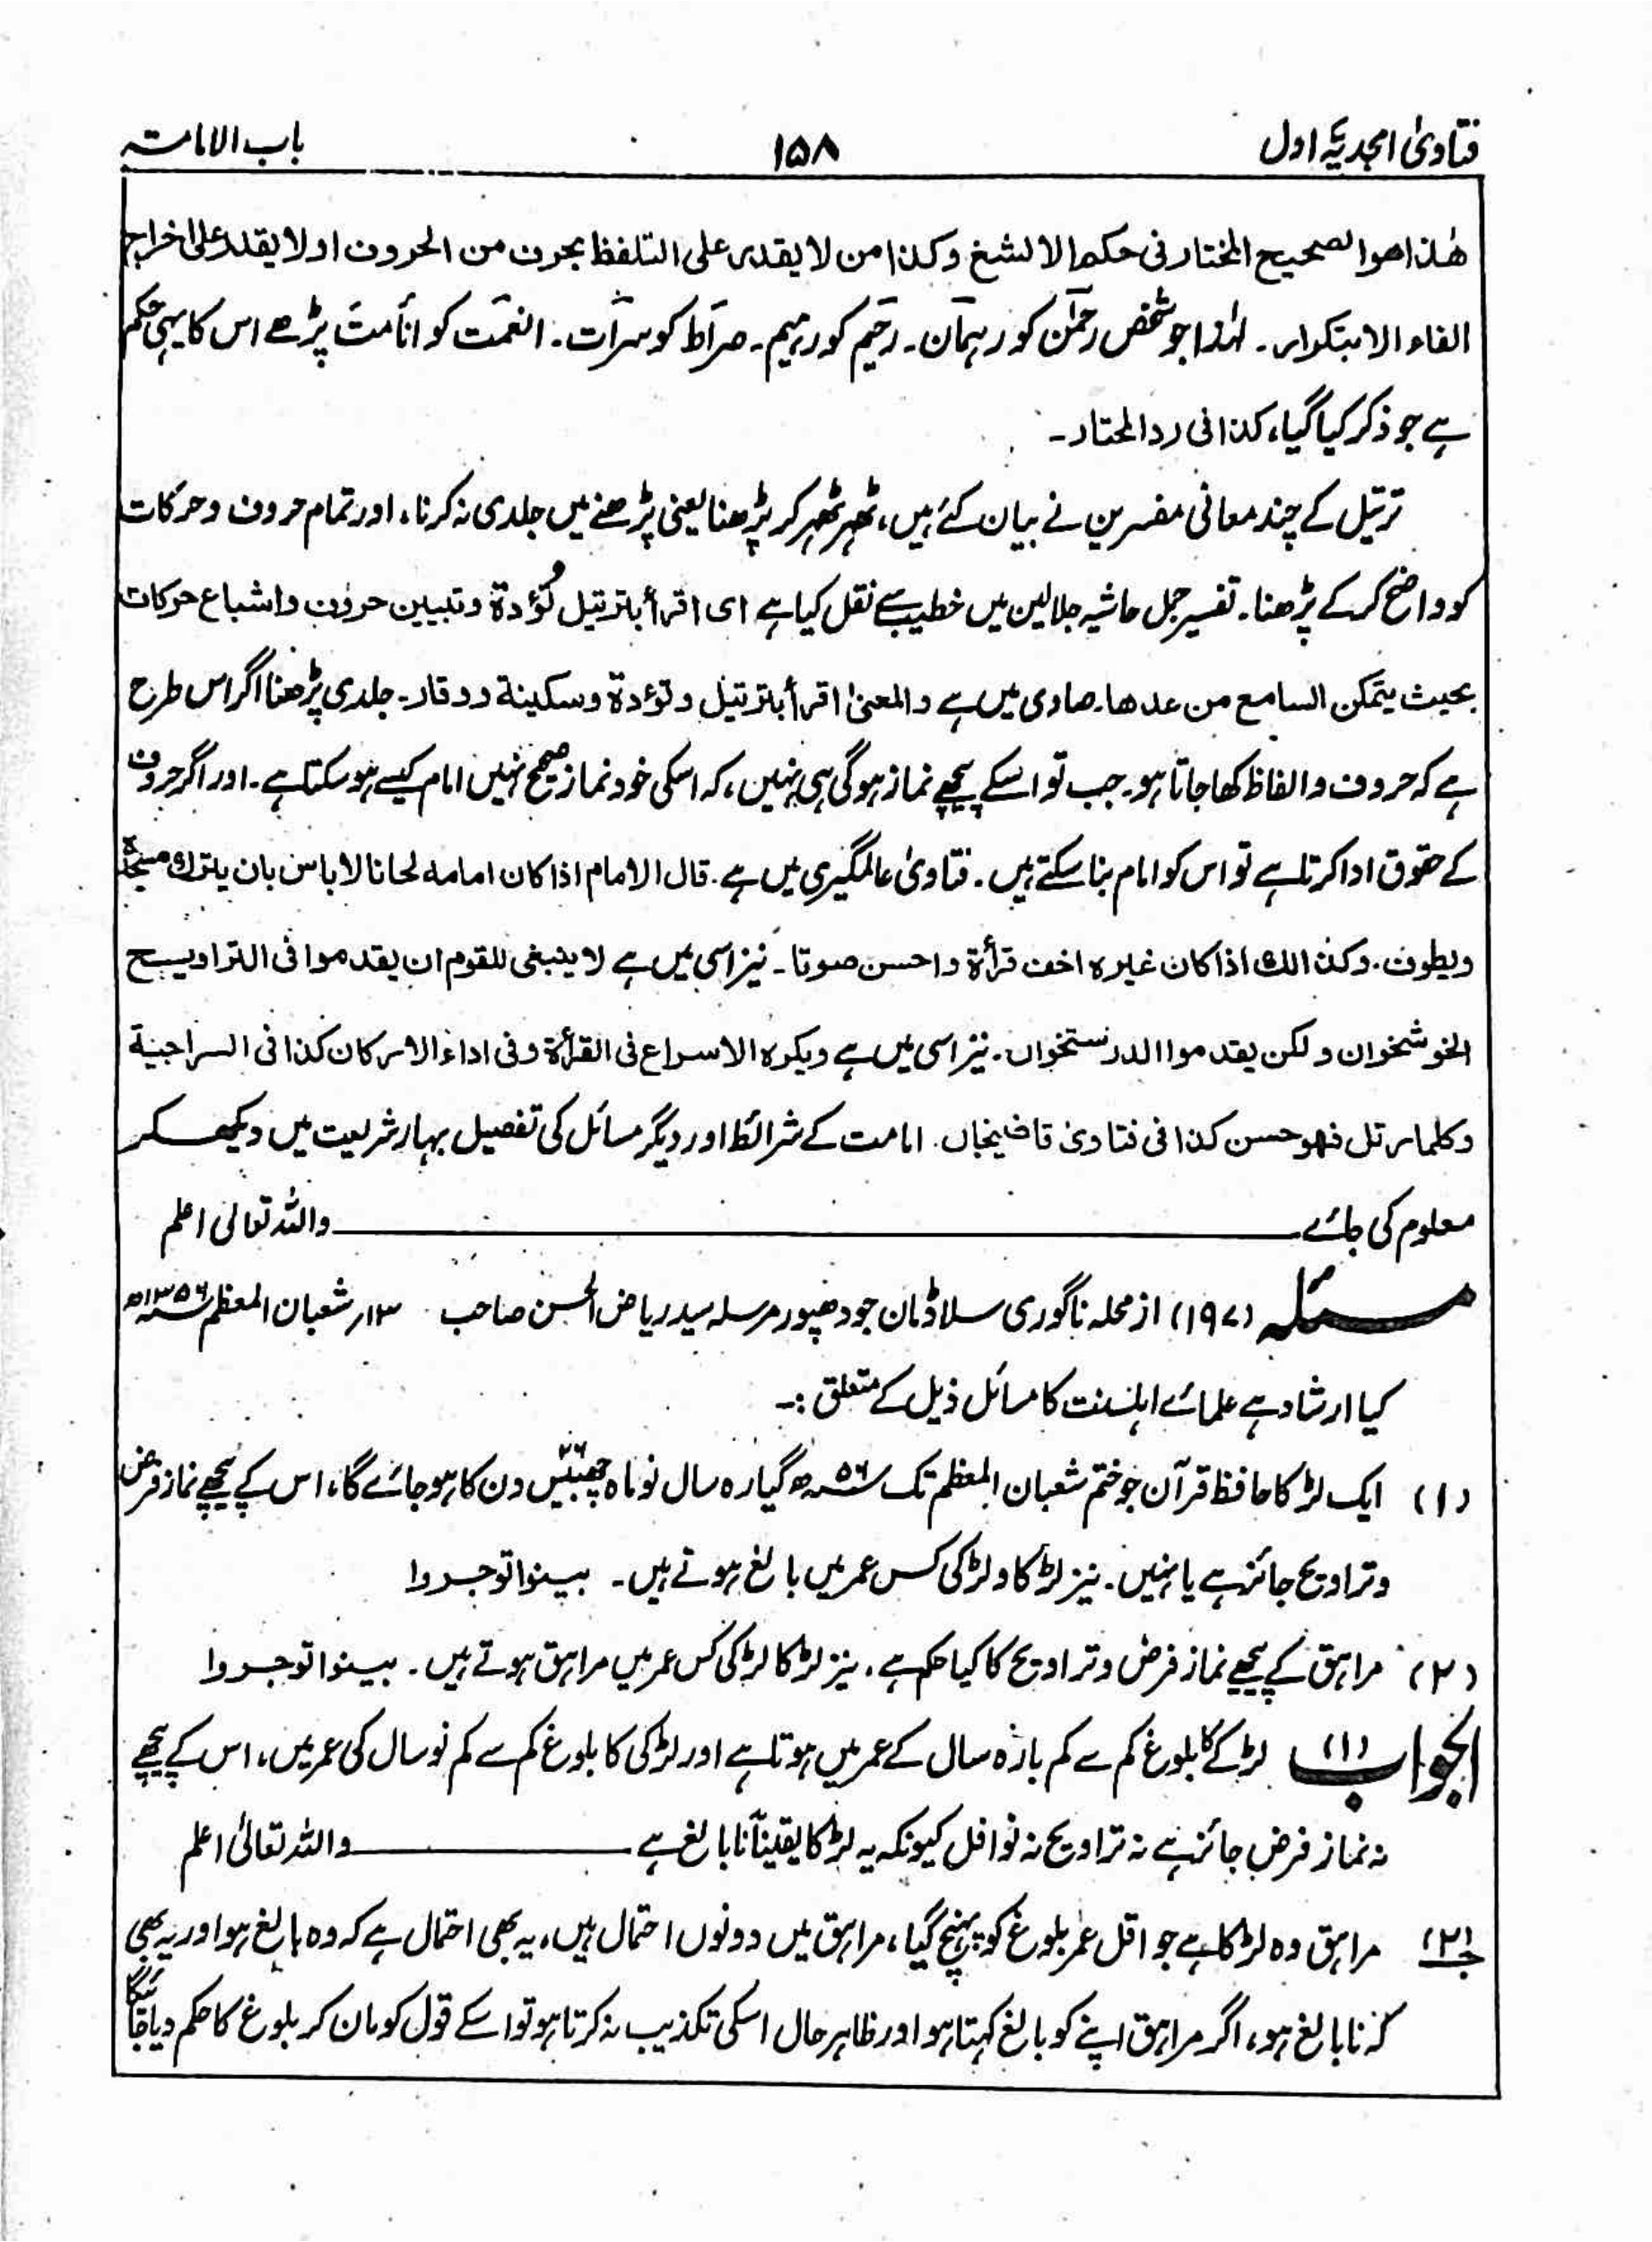 فتاویٰ امجدیہ اول
۱۵۸
باب الامامت
ھٰذا ھوا لصحیح المختار فی حکم الالشغ وکذا من لا یقدر علی التلفظ بحرف من الحروف او لا یقدر علی اخراج
الفاء الا بتکرار ۔ لہٰذا جو شخص رحمٰن کو رہمان ۔ رحیم کو رہیم ۔ صراط کو سرات ۔ انعمت کو انأمت پڑھے اس کا یہی حکم
ہے جو ذکر کیا گیا، کذا فی رد المحتار ۔
ترتیل کے چند معانی مفسرین نے بیان کئے ہیں، ٹھہر ٹھہر کر پڑھنا یعنی پڑھنے میں جلدی نہ کرنا، اور تمام حروف وحرکات
کو واضح کرکے پڑھنا ۔ تفسیر جمل حاشیہ جلالین میں خطیب سے نقل کیا ہے ای اقرأ بترتیل تُؤدۃ وتبیین حروف واشباع حرکات
بحیث یتمکن السامع من عدھا ۔ صاوی میں ہے والمعنیٰ اقرأ بترتیل وتؤدۃ وسکینۃ ووقار ۔ جلدی پڑھنا اگر اس طرح
ہے کہ حروف والفاظ کھا جاتا ہو ۔ جب تو اسکے پیچھے نماز ہوگی ہی نہیں، کہ اسکی خود نماز صحیح نہیں امام کیسے ہوسکتا ہے ۔ اور اگر حروف
کے حقوق ادا کرتا ہے تو اس کو امام بنا سکتے ہیں ۔ فتاویٰ عالمگیری میں ہے ۔ قال الامام اذا کان امامہ لحانا لا باس بان یترک مسجدہ
ویطوف ۔ وکذالک اذا کان غیرہ اخف قرأۃ واحسن صوتا ۔ نیز اسی میں ہے لا ینبغی للقوم ان یقدموا فی التراویح
الخوشخوان ولکن یقدموا الدرستخوان ۔ نیز اسی میں ہے ویکرہ الاسراع فی القرأۃ وفی اداء الارکان کذا فی السراجیۃ
وکلما رتل فھو حسن کذا فی فتاویٰ قاضیخاں ۔ امامت کے شرائط اور دیگر مسائل کی تفصیل بہار شریعت میں دیکھ کر
معلوم کی جائے ۔ واللہ تعالیٰ اعلم
مسئلہ (۱۹۷) از محلہ ناگوری سلاوٹان جودھپور مرسلہ سید ریاض الحسن صاحب ۱۳ر شعبان المعظم ۱۳۵۶ھ
کیا ارشاد ہے علمائے اہلسنت کا مسائل ذیل کے متعلق :۔
(۱) ایک لڑکا حافظ قرآن جو ختم شعبان المعظم تک ۵۶ھ گیارہ سال نو ماہ چھبیس ۲۶ دن کا ہو جائے گا، اس کے پیچھے نماز فرض
وتراویح جائز ہے یا نہیں ۔ نیز لڑکا ولڑکی کس عمر میں بالغ ہوتے ہیں ۔ بینوا توجروا
(۲) مراہق کے پیچھے نماز فرض وتراویح کا کیا حکم ہے، نیز لڑکا لڑکی کس عمر میں مراہق ہوتے ہیں ۔ بینوا توجروا
الجواب (۱) لڑکے کا بلوغ کم سے کم بارہ سال کے عمر میں ہوتا ہے اور لڑکی کا بلوغ کم سے کم نو سال کی عمر میں، اس کے پیچھے
نہ نماز فرض جائز ہے نہ تراویح نہ نوافل کیونکہ یہ لڑکا یقیناً نابالغ ہے ۔ واللہ تعالیٰ اعلم
جـ (۲) مراہق وہ لڑکا ہے جو اقل عمر بلوغ کو پہنچ گیا، مراہق میں دونوں احتمال ہیں، یہ بھی احتمال ہے کہ وہ بالغ ہو اور یہ بھی
کہ نابالغ ہو، اگر مراہق اپنے کو بالغ کہتا ہو اور ظاہر حال اسکی تکذیب نہ کرتا ہو تو اسکے قول کو مان کر بلوغ کا حکم دیا جائیگا